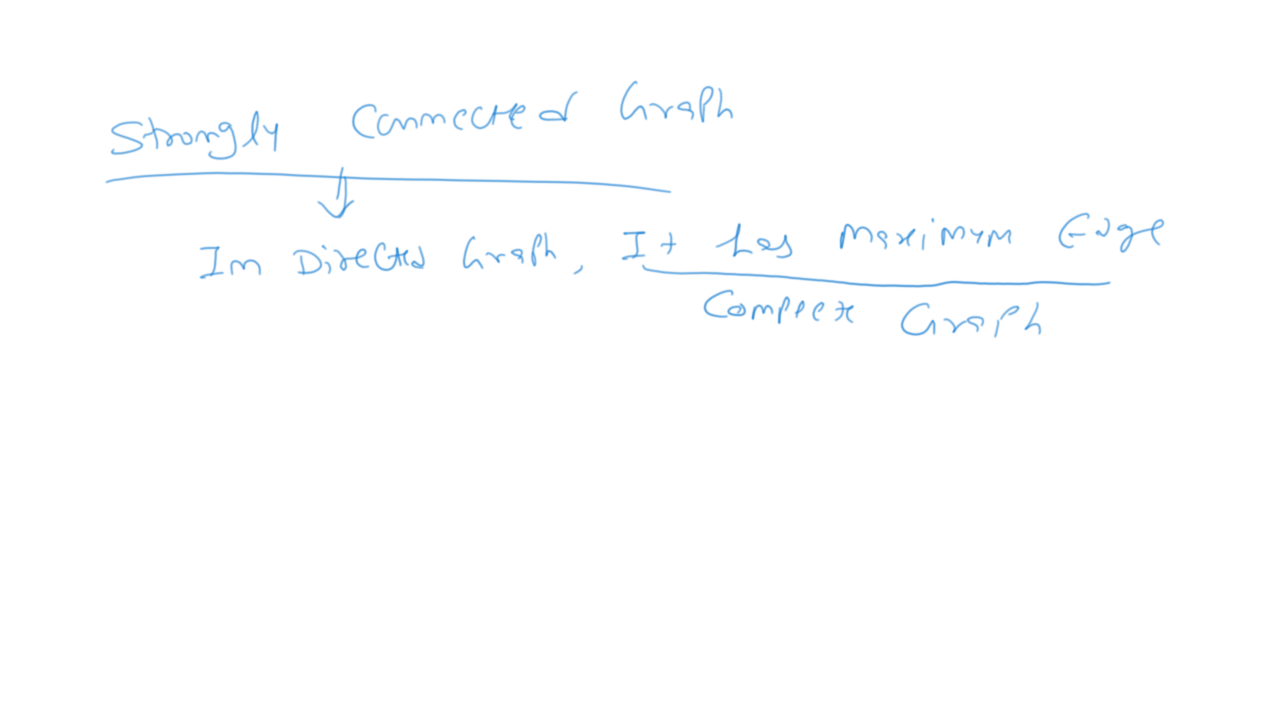 Strongly Connected Graph
In Directed Graph, It has maximum Edge
Complete Graph